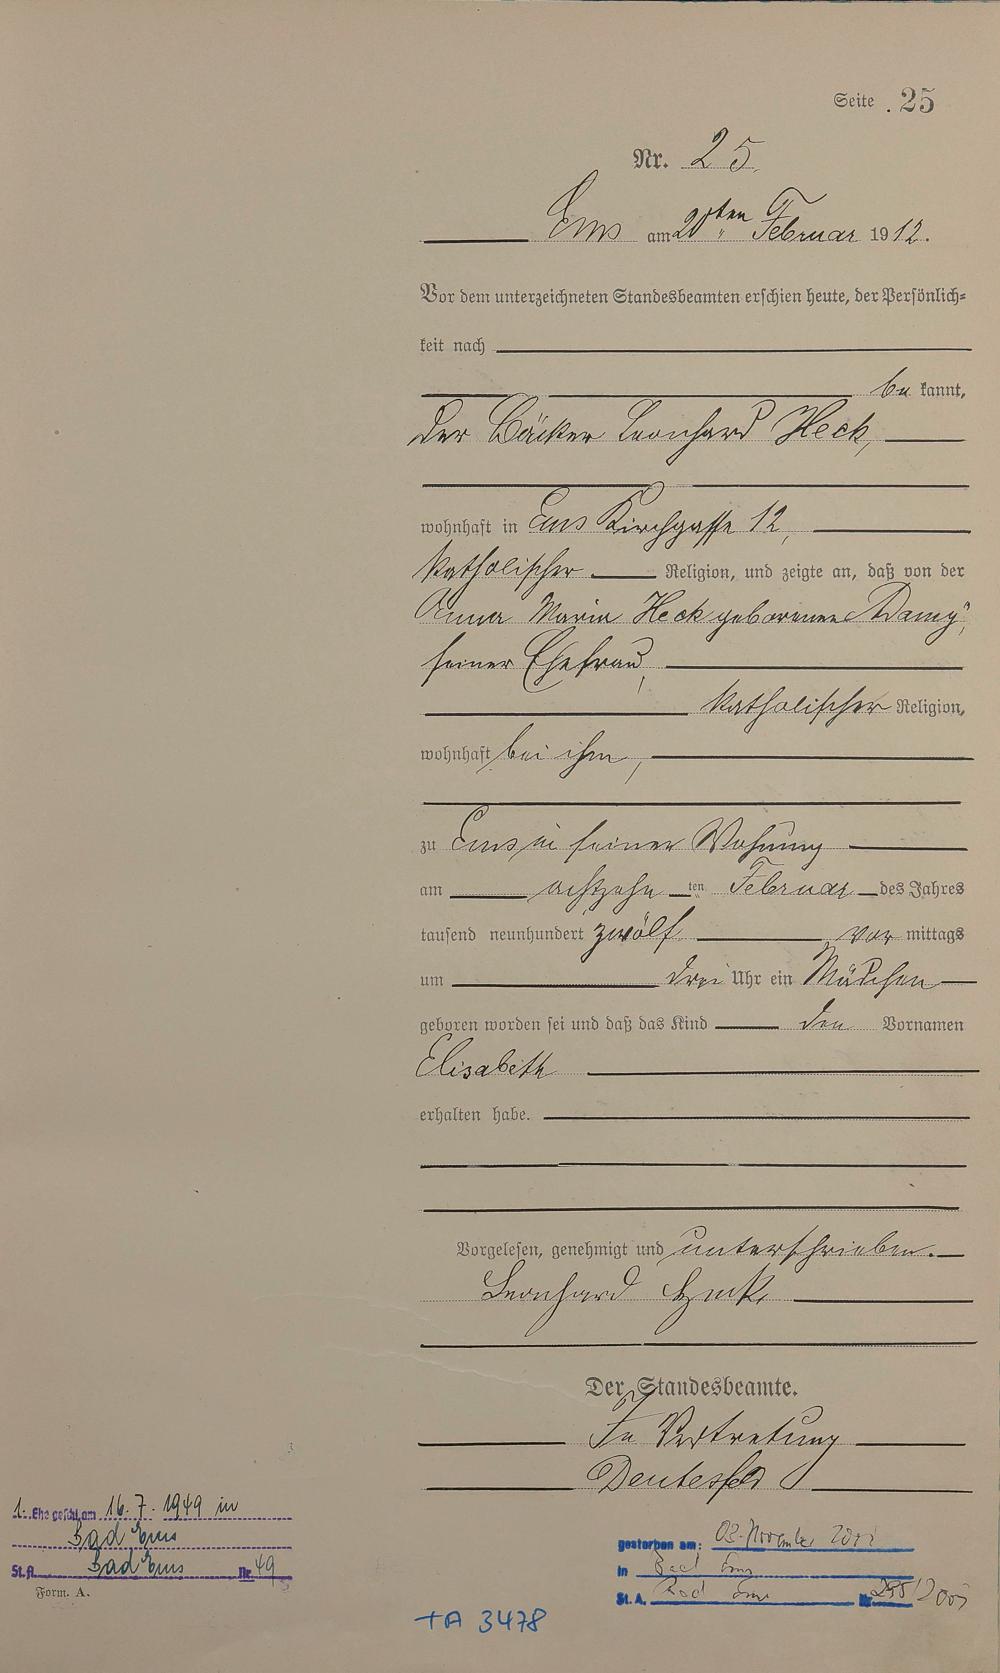 Seite 25
Nr. 25
Ems am 20ten Februar 1912.
Vor dem unterzeichneten Standesbeamten erschien heute, der Persönlich=
keit nach
be kannt,
der Bäcker Leonhard Heck,
wohnhaft in Ems Kirchgasse 12,
katholischer Religion, und zeigte an, daß von der
Anna Maria Heck geborenen
seiner Ehefrau,
katholischer Religion,
wohnhaft bei ihm,
zu Ems in seiner Wohnung
am achtzehn ten Februar des Jahres
tausend neunhundert zwölf vor mittags
um drei Uhr ein Mädchen
geboren worden sei und daß das Kind den Vornamen
Elisabeth
erhalten habe.
Vorgelesen, genehmigt und unterschrieben.
Leonhard Heck.
Der Standesbeamte.
In Vertretung
1. Ehe geschl. am 16.7.1949 in
Bad Ems
St.A. Bad Ems Nr. 49
Form. A.
gestorben am: 03. November
in Bad Ems
St. A. Bad Ems Nr.
+A 3478